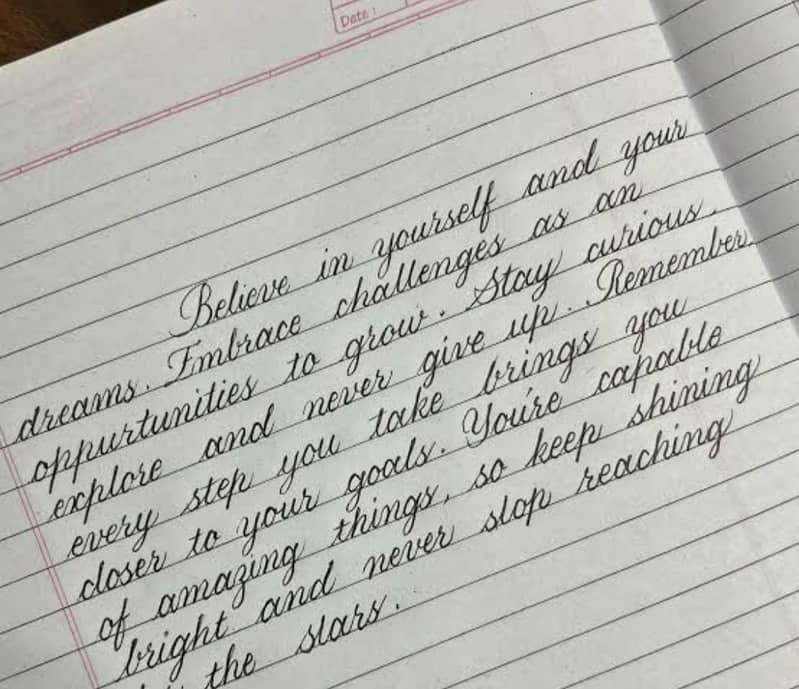 Date :
Believe in yourself and your
dreams. Embrace challenges as an
oppurtunities to grow. Stay curious,
explore and never give up. Remember,
every step you take brings you
closer to your goals. You're capable
of amazing things, so keep shining
bright and never stop reaching
the stars.